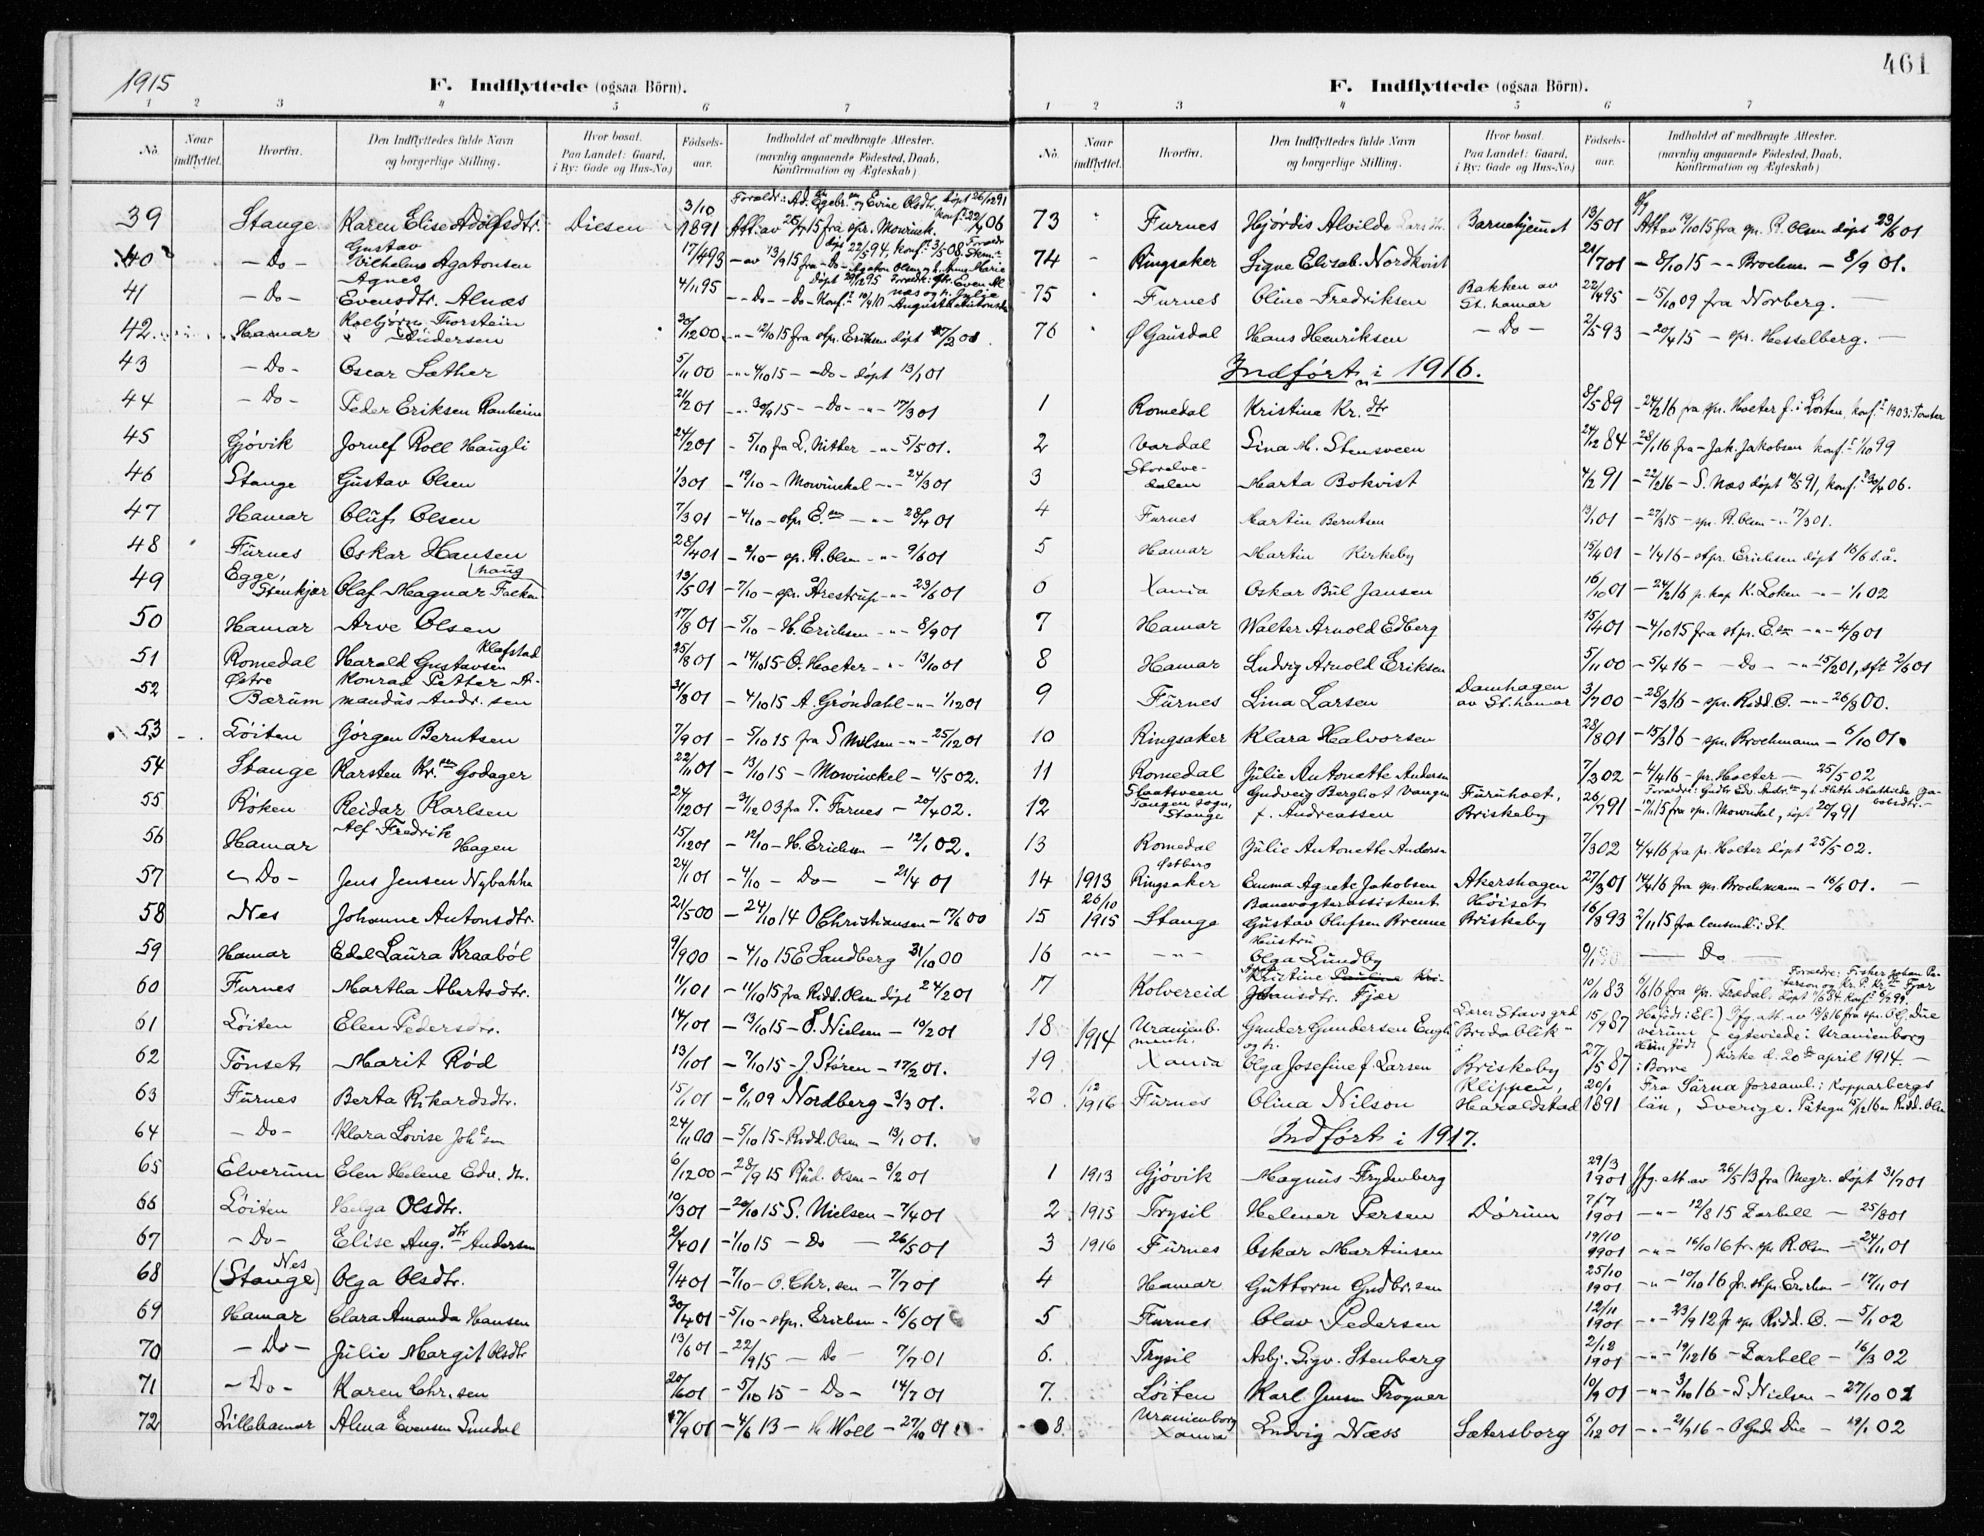 1915
F. Indflyttede (ogsaa Börn).
1 2 3 4 5 6 7
No. Naar indflyttet. Hvorfra. Den Indflyttedes fulde Navn og borgerlige Stilling. Hvor bosat. Paa Landet: Gaard, i By: Gade og Hus-No.) Fødsels-aar. Indholdet af medbragte Attester. (navnlig angaaende Fødested, Daab, Konfirmation og Ægteskab)
39 Stange Karen Elise Adolfsdtr. Diesen 3/10 1891
40 – Do – Gustav Vilhelm Agatonsen 17/4 93
41 – Do – Agnes Evensdtr. Alnæs 4/11 95
42 Hamar Kolbjørn Torstein Andersen 30/12 00 12/10 15 fra spr. Eriksen døpt 17/2 01
43 – Do – Oscar Sæther 5/11 00 – 4/10 15 – Do – døpt 13/1 01
44 – Do – Peder Eriksen Ranheim 21/2 01 30/9 15 – Do – 17/3 01
45 Gjøvik Jornulf Roll Haugli 24/2 01 – 5/10 fra L. Ritter – 5/5 01.
46 Stange Gustav Olsen 1/3 01 – 19/10 – Mowinckel – 24/3 01
47 Hamar Oluf Olsen 7/3 01 – 4/10 – spr E. – 28/4 01
48 Furnes Oskar Hansen 28/4 01 – 2/10 – sp. R. Olsen – 9/6 01
49 Egge, Stenkjær Olaf Magnar Falkhaug 13/5 01 – 7/10 – spr. Arestrup – 23/6 01
50 Hamar Arve Olsen 17/8 01 – 5/10 – H. Erichsen – 8/9 01
51 Romedal Harald Gustavsen Klafstad 25/8 01 – 14/10 15 – O. Hoeter – 13/10 01
52 Østre Bærum Konrad Petter Amandus Andr.sen 31/8 01 – 4/10 15 A. Grøndahl – 1/12 01
53 Løiten Jørgen Berntsen 7/9 01 – 5/10 15 fra S Nilsen – 25/12 01
54 Stange Karsten Kr.sen Godager 22/11 01 – 13/10 15 – Mowinckel – 4/5 02.
55 Røken Reidar Karlsen 24/12 01 – 31/12 03 fra T. Farnes – 20/4 02.
56 Hamar Alf Fredrik Hagen 15/12 01 – 12/10 – H. Erichsen – 12/1 02.
57 – Do – Jens Jensen Nybakke 24/1 01 – 4/10 – Do – 21/4 01
58 Nes Johanne Antonsdtr. 21/5 00 – 24/10 14 O Christiansen – 17/6 00
59 Hamar Edel Laura Kraabøl 9/9 00 – 4/10 15 E Sandberg 31/10 00
60 Furnes Martha Albertsdtr. 11/1 01 – 11/10 15 fra Ridd. Olsen døpt 24/2 01
61 Løiten Elen Pedersdtr. 14/1 01 – 13/10 15 – S. Nielsen – 10/2 01
62 Tønset Marit Rød 13/1 01 – 7/10 15 – J. Støren – 17/2 01.
63 Furnes Berta Rikardsdtr. 15/1 01 – 8/11 09 Nordberg – 3/3 01.
64 – Do – Klara Lovise Joh.sen 24/11 00 – 5/10 15 – Ridd. Olsen – 13/1 01.
65 Elverum Elen Helene Edv. dtr. 6/12 00 – 28/9 15 Rud. Olsen – 3/2 01
66 Løiten Helga Olsdtr. 10/3 01 – 20/10 15 S. Nielsen – 7/4 01
67 – Do – Elise Aug. dtr Andersen 2/4 01 – 1/10 15 – Do – 26/5 01
68 Nes (Stange) Olga Olsdtr. 9/4 01 – 7/10 – O. Chr.sen – 7/7 01
69 Hamar Clara Amanda Hansen 30/4 01 – 5/10 – spr. Erichsen – 16/6 01
70 – Do – Julie Margit Olsdtr 13/6 01 – 22/9 15 – Do – 7/7 01
71 – Do – Karen Chr.sen 20/6 01 – 5/10 15 – Do – 14/7 01
72 Lillehamar Alma Evensen Lundal 17/9 01 – 4/6 13 – H Woll – 27/10 01
461
F. Indflyttede (ogsaa Börn).
1 2 3 4 5 6 7
No. Naar indflyttet. Hvorfra. Den Indflyttedes fulde Navn og borgerlige Stilling. Hvor bosat. Paa Landet: Gaard, i By: Gade og Hus-No.) Fødsels-aar. Indholdet af medbragte Attester. (navnlig angaaende Fødested, Daab, Konfirmation og Ægteskab)
73 Furnes Hjørdis Alvilde Barnehjemmet 13/5 01 Att av 19/10 15 fra sp. R. Olsen døpt 23/6 01
74 Ringsaker Signe Elisab. Nordkvist 21/7 01 – 8/10 15 – Brochm. – 8/9 01.
75 Furnes Oline Fredriksen Bakken av St. hamar 22/4 95 – 15/10 09 fra Norberg. –
76 Ø Gausdal Hans Henriksen – Do – 2/5 93 – 20/4 15 – spr. Hesselberg. –
Indført i 1916.
1 Romedal Kristine Kr. dtr 8/5 89 – 24/2 16 fra spr. Hoeter f. i Løiten, konf. 1903 i Tomter
2 Vardal Lina M. Stensveen 24/12 84 – 28/1 16 fra – Jak. Jakobsen konf. 1/10 99
3 Storelvedalen Marta Bokvist 4/2 91 – 22/2 16 – S. Næs døpt 10/5 91, konf. 30/4 06.
4 Furnes Martin Berntsen 13/1 01 – 27/3 15 – sp. R. Olsen – 17/3 01.
5 Hamar Martin Kirkeby 15/4 01 – 1/4 16 – spr. Erichsen døpt 16/6 s. å.
6 Xania Oskar Bul Jansen 16/10 01 – 24/2 16 p. kap K. Løken – 1/1 02
7 Hamar Walter Arnold Edberg 15/4 01 – 4/10 15 fra spr. E.sen – 4/8 01
8 Hamar Ludvig Arnold Eriksen 5/11 00 – 5/4 16 – Do – 15/2 01, sft 2/6 01
9 Furnes Lina Larsen Damhagen av St. hamar 3/7 00 – 28/3 16 – spr. Ridd. O. – 26/8 00.
10 Ringsaker Klara Halvorsen 28/8 01 – 15/3 16 – spr. Brochmann – 6/10 01.
11 Romedal Julie Antonette Andersen 7/3 02 – 4/4 16 – pr. Hoeter – 25/5 02
12 Slaatsveen Tangen sogn, Stange Gudveig Bergliot Vangen f. Andreassen Furuhoet, Briskeby 26/7 91 – 17/11 15 fra spr. Mowinckel, døpt 20/9 91
13 Romedal Julie Antonette Andersen 7/3 02 4/4 16 fra pr. Holter døpt 25/5 02.
14 1913 Østberg Ringsaker Emma Agnete Jakobsen Akershagen 27/3 01 14/4 16 fra spr. Brochmann – 16/6 01. –
15 26/10 1915 Stange Banevogterassistent Gustav Olufsen Brenne Høiset Briskeby 16/8 93 2/11 15 fra lensmd. i St.
16 – – Hustru Olga Lundby 9/1 – Do –
17 Kolvereid Kristine Pauline Johansdtr. Fjær 10/11 83 6/6 16 fra spr. Trædal.
18 1914 Uranienb. menh. Gunder Gundersen Engh og h. Lærer Stavs grd Bredablik 15/9 87
19 Xania Olga Josefine f. Larsen Briskeby 27/5 87 egteviede i Uranienborg kirke d. 20de april 1914. –
20 12/1916 Furnes Olina Nilson Klippen, Haraldstad 20/1 1891 Fra Särna forsaml. i Kopparbergs län, Sverige. Påtegn 15/12 16 av Ridd. Olsen
Indført i 1917.
1 1913 Gjøvik Magnus Frydenberg 29/3 1901 Jfg. att. av 26/5 13 fra Megr. døpt 31/7 01
2 1915 Trysil Helmer Persen Dørum 7/7 1901 12/8 15 Zarbell – 25/8 01
3 1916 Furnes Oskar Martinsen 19/10 1901 16/10 16 fr. spr R. Olsen – 24/11 01
4 Hamar Guttorm Gudbr.sen 25/10 1901 10/10 16 fr. spr. Erichsen – 17/11 01
5 Furnes Olav Pedersen 12/11 1901 23/9 12 fr spr Ridd. O. – 5/1 02
6. Trysil Asbj. Sigv. Stenberg 2/12 1901 19/12 16 – Zarbell – 16/3 02
7. Løiten Karl Jensen Frogner 10/9 01 3/10 16 – S Nielsen – 27/10 01
8. Uranienborg Xania Ludvig Næss Sætersborg 5/12 01 21/9 16 – O Gude Due – 19/1 02